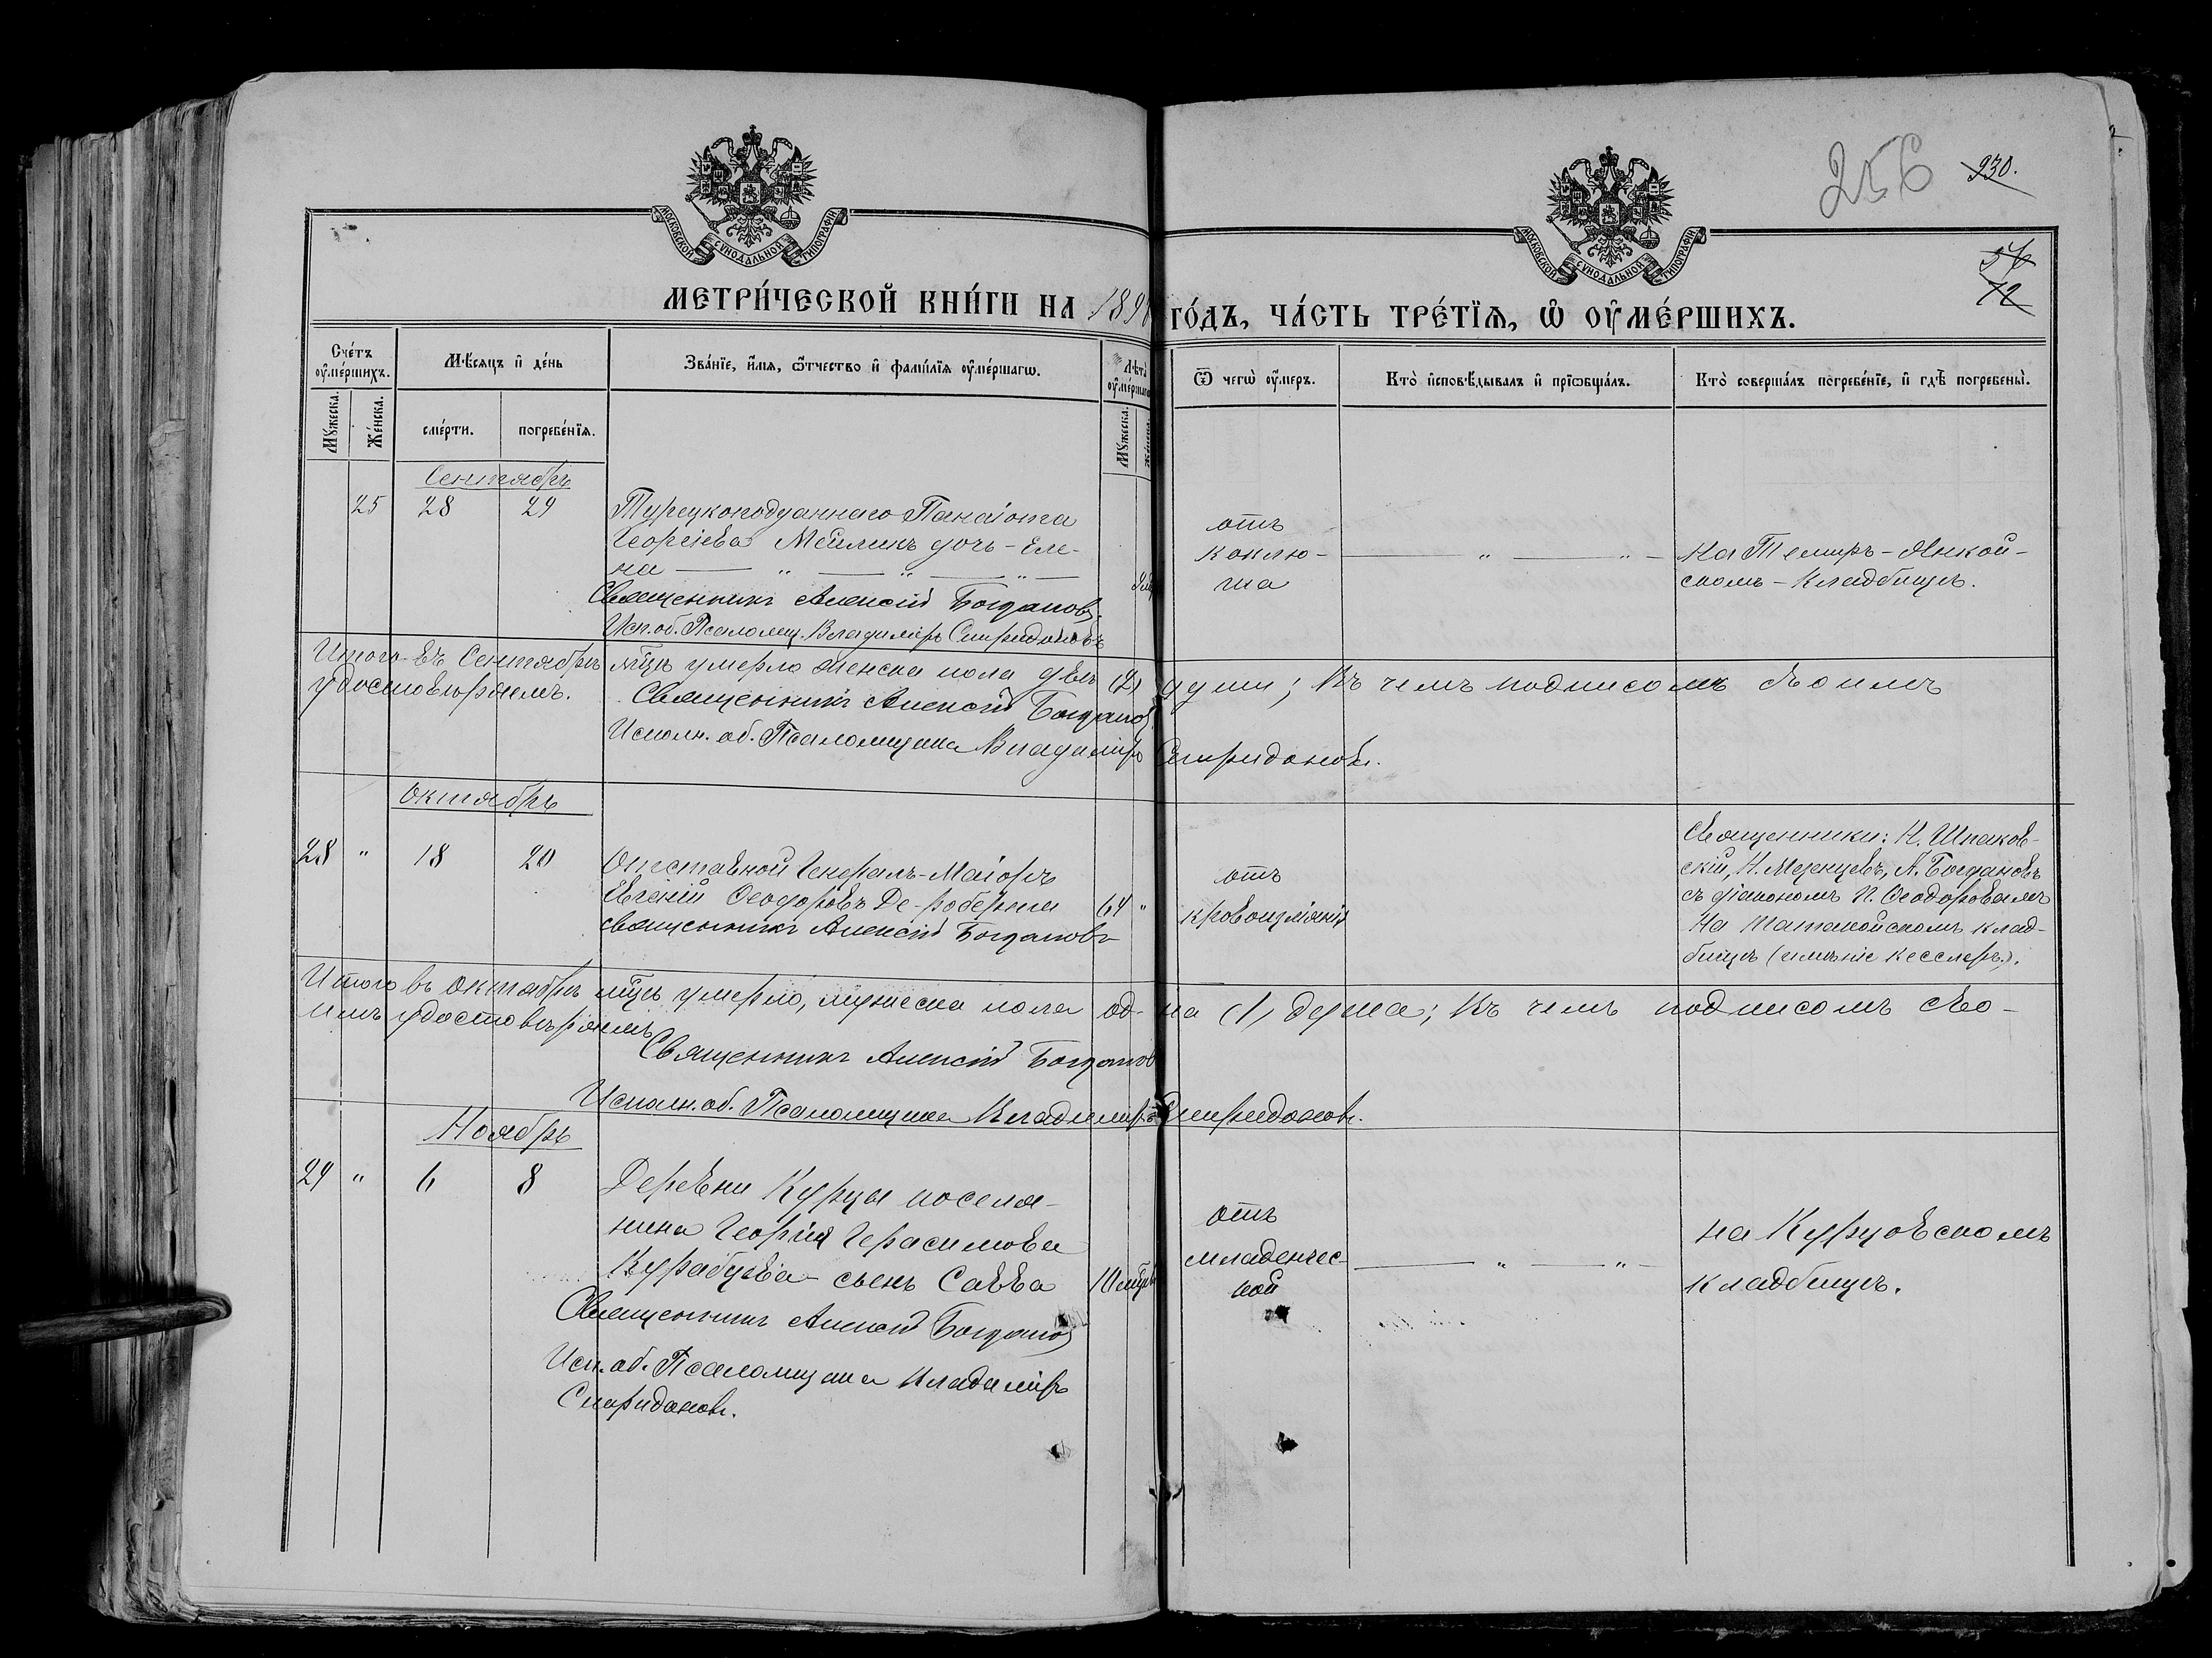 256 930.
56
72
МОСКОВСКОЙ СѴНОДАЛЬНОЙ ТИПОГРАФІИ
МОСКОВСКОЙ СѴНОДАЛЬНОЙ ТИПОГРАФІИ
МЕТРИ́ЧЕСКОЙ КНИ́ГИ НА 189 ГО́ДЪ, ЧА́СТЬ ТРЕ́ТЇѦ, Ѡ ОУ҆МЕ́РШИХЪ.
Сче́тъ оу҆ме́ршихъ.
Мѣ́сяцъ и҆ де́нь
Зва́нїе, и҆́мя, ѻ҆́тчество и҆ фами́лїя оу҆ме́ршагѡ.
Лѣ́та оу҆ме́ршаго
Ѿ чегѡ̀ оу҆́меръ.
Кто̀ и҆сповѣ́дывалъ и҆ прїѡбща́лъ.
Кто̀ соверша́лъ погребе́нїе, и҆ гдѣ̀ погребены̀.
Мꙋ́жеска.
Же́нска.
сме́рти.
погребе́нїя.
Мꙋ́жеска.
Же́нска.
Сентябрь
25 28 29 Турецкоподданнаго Панаіота
Георгіева Мейликъ дочь - Еле-
на — " — " — " —
Священникъ Алексій Богдановъ
Исп. об. Псаломщ. Владиміръ Спиридоновъ
отъ
коклю-
ша
— " — " —
На Темиръ-Аккой-
скомъ - кладбищѣ.
Итого въ Сентябрѣ мцѣ умерло женска пола двѣ (2) души; въ чемъ подписомъ своимъ
удостовѣряемъ.
Священникъ Алексій Богдановъ
Исполн. об. Псаломщика Владиміръ Спиридоновъ.
Октябрь
28 " 18 20 Отставной Генералъ-Маіоръ
Евгеній Ѳеодоровъ Де-Роберти 64 "
священникъ Алексій Богдановъ
отъ
кровоизліянія
Священники: Н. Шпаков-
скій, Н. Мезенцевъ, А. Богдановъ
съ діакономъ П. Ѳеодоровымъ
На кой­скомъ клад-
бищѣ (имѣніе Кесслеръ).
Итого въ Октябрѣ мцѣ умерло, мужеска пола од-на (1) душа; въ чемъ подписомъ сво-
имъ удостовѣряемъ
Священникъ Алексій Богдановъ
Исполн. об. Псаломщика Владиміръ Спиридоновъ.
Ноябрь
29 " 6 8 Деревни Курцы поселя-
нина Георгія Герасимова
Курабцева - сынъ Савва 10 мцв
Священникъ Алексій Богдановъ
Исп. об. Псаломщика Владиміръ
Спиридоновъ.
отъ
младенчес-
кой
— " — " —
на Курцовскомъ
кладбищѣ.